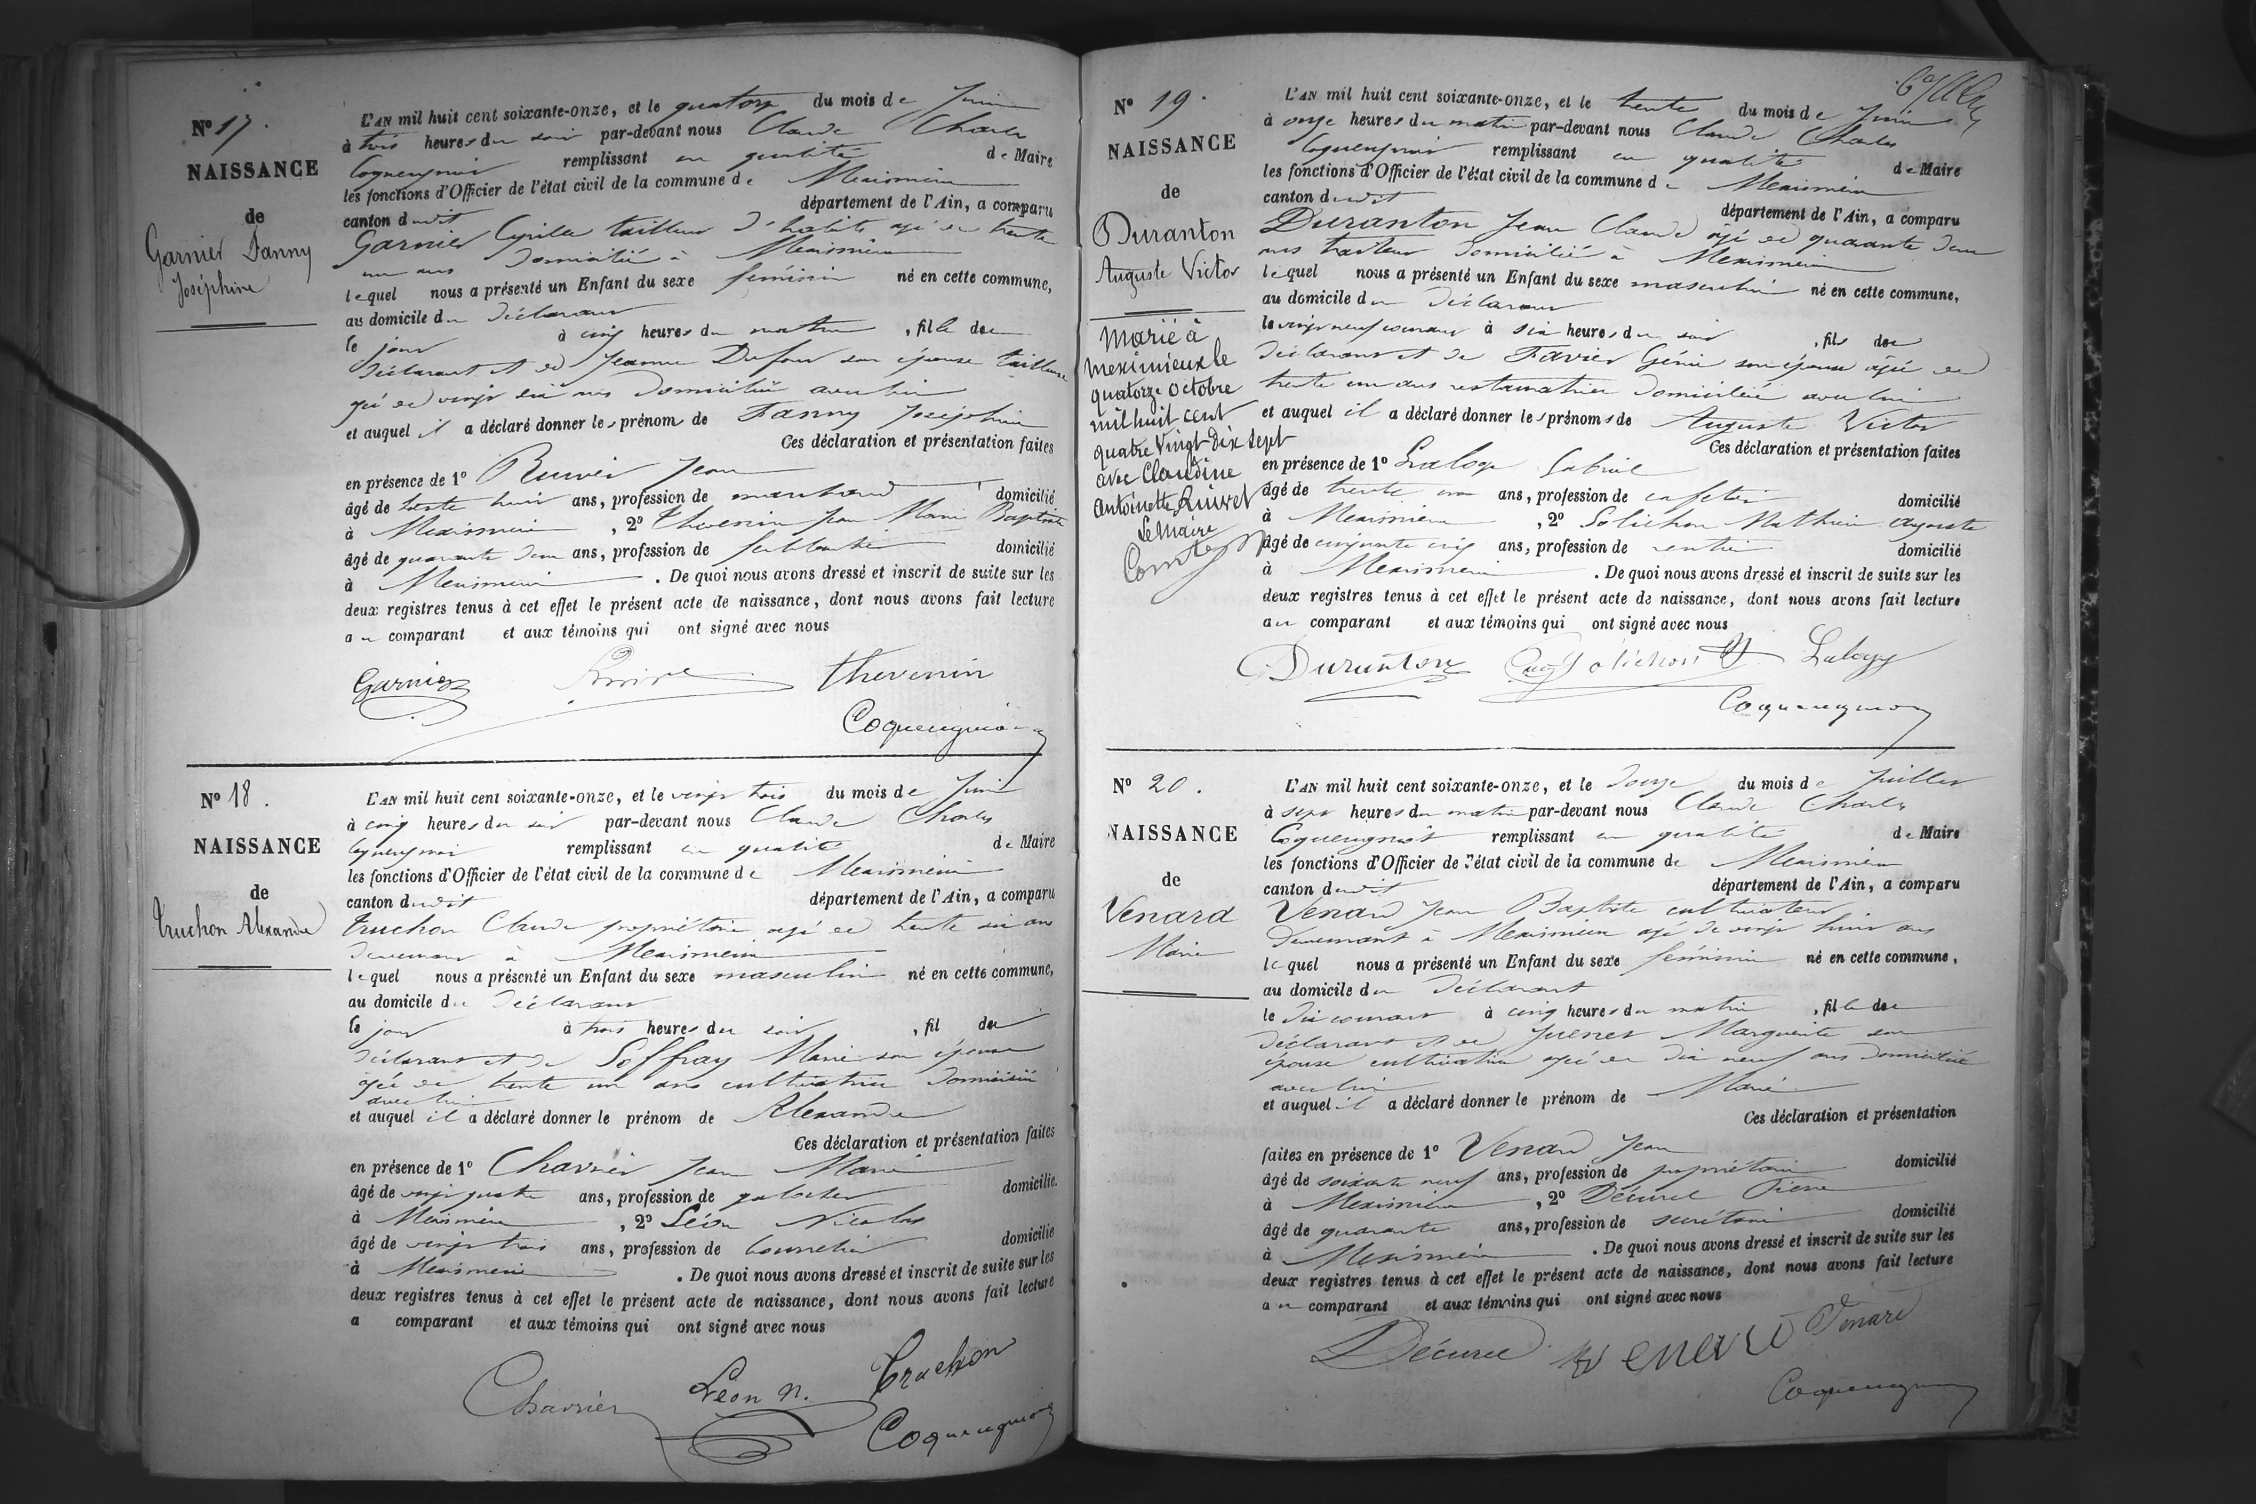 Nº 17.
NAISSANCE
de
Garnier Fanny
Joséphine
L'AN mil huit cent soixante-onze, et le quatorze du mois de Juin
à trois heures du soir par-devant nous Claude Charles
Coqueugniot remplissant en qualité de Maire
les fonctions d'Officier de l'état civil de la commune de Meximieux
canton dudit département de l'Ain, a comparu
Garnier Cyrille tailleur d'habits agé de trente
un ans domicilié à Meximieux
lequel nous a présenté un Enfant du sexe féminin né en cette commune,
au domicile du déclarant
le jour à cinq heures du matin, fille du
déclarant et de Jeanne Dufour son épouse tailleuse
agée de vingt six ans domiciliée avec lui
et auquel il a déclaré donner les prénoms de Fanny Joséphine
Ces déclaration et présentation faites
en présence de 1º Jean
âgé de trente huit ans, profession de marchand domicilié
à Meximieux, 2º Thevenin Jean Marie Baptiste
âgé de quarante deux ans, profession de ferblantier domicilié
à Meximieux. De quoi nous avons dressé et inscrit de suite sur les
deux registres tenus à cet effet le présent acte de naissance, dont nous avons fait lecture
au comparant et aux témoins qui ont signé avec nous
Garnier Thevenin
Coqueugniot
Nº 18.
NAISSANCE
de
Truchon Alexandre
L'AN mil huit cent soixante-onze, et le vingt trois du mois de Juin
à cinq heures du soir par-devant nous Claude Charles
Coqueugniot remplissant en qualité de Maire
les fonctions d'Officier de l'état civil de la commune de Meximieux
canton dudit département de l'Ain, a comparu
Truchon Claude propriétaire agé de trente six ans
demeurant à Meximieux
lequel nous a présenté un Enfant du sexe masculin né en cette commune,
au domicile du déclarant
le jour à trois heures du soir, fil du
déclarant et de Soffray Marie son épouse
agée de trente un ans cultivatrice domiciliée
avec lui
et auquel il a déclaré donner le prénom de Alexandre
Ces déclaration et présentation faites
en présence de 1º Charvier Jean Marie
âgé de vingt quatre ans, profession de galocher domicilié
à Meximieux, 2º Léon Nicolas
âgé de vingt trois ans, profession de bourrelier domicilié
à Meximieux. De quoi nous avons dressé et inscrit de suite sur les
deux registres tenus à cet effet le présent acte de naissance, dont nous avons fait lecture
a comparant et aux témoins qui ont signé avec nous
Charvier Léon N. Truchon
Coqueugniot
Nº 19.
NAISSANCE
de
Duranton
Auguste Victor
Marié à
meximieux le
quatorze octobre
mil huit cent
quatre vingt dix sept
avec Claudine
Antoinette Ruivet
Le Maire
L'AN mil huit cent soixante-onze, et le trente du mois de Juin
à onze heures du matin par-devant nous Claude Charles
Coqueugniot remplissant en qualité de Maire
les fonctions d'Officier de l'état civil de la commune de Meximieux
canton dudit département de l'Ain, a comparu
Duranton Jean Claude âgé de quarante deux
ans traiteur domicilié à Meximieux
lequel nous a présenté un Enfant du sexe masculin né en cette commune,
au domicile du déclarant
le vingt neuf courant à six heures du soir, fils du
déclarant et de Favier Génie son épouse âgée de
trente un ans restauratrice domiciliée avec lui
et auquel il a déclaré donner les prénoms de Auguste Victor
Ces déclaration et présentation faites
en présence de 1º Laloge Gabriel
âgé de trente ans, profession de cafetier domicilié
à Meximieux, 2º Solichon Mathieu Auguste
âgé de cinquante cinq ans, profession de rentier domicilié
à Meximieux. De quoi nous avons dressé et inscrit de suite sur les
deux registres tenus à cet effet le présent acte de naissance, dont nous avons fait lecture
au comparant et aux témoins qui ont signé avec nous
Duranton Augte Solichon Laloge
Coqueugniot
Nº 20.
NAISSANCE
de
Venard
Marie
L'AN mil huit cent soixante-onze, et le douze du mois de Juillet
à sept heures du matin par-devant nous Claude Charles
Coqueugniot remplissant en qualité de Maire
les fonctions d'Officier de l'état civil de la commune de Meximieux
canton dudit département de l'Ain, a comparu
Venard Jean Baptiste cultivateur
demeurant à Meximieux agé de vingt huit ans
lequel nous a présenté un Enfant du sexe féminin né en cette commune,
au domicile du déclarant
le dix courant à cinq heures du matin, fille du
déclarant et de Juenet Marguerite son
épouse cultivatrice agée de dix neuf ans domiciliée
avec lui
et auquel il a déclaré donner le prénom de Marie
Ces déclaration et présentation
faites en présence de 1º Venard Jean
âgé de soixante neuf ans, profession de propriétaire domicilié
à Meximieux, 2º Décurel Pierre
âgé de quarante ans, profession de secrétaire domicilié
à Meximieux. De quoi nous avons dressé et inscrit de suite sur les
deux registres tenus à cet effet le présent acte de naissance, dont nous avons fait lecture
au comparant et aux témoins qui ont signé avec nous
Décurel Venard Venard
Coqueugniot